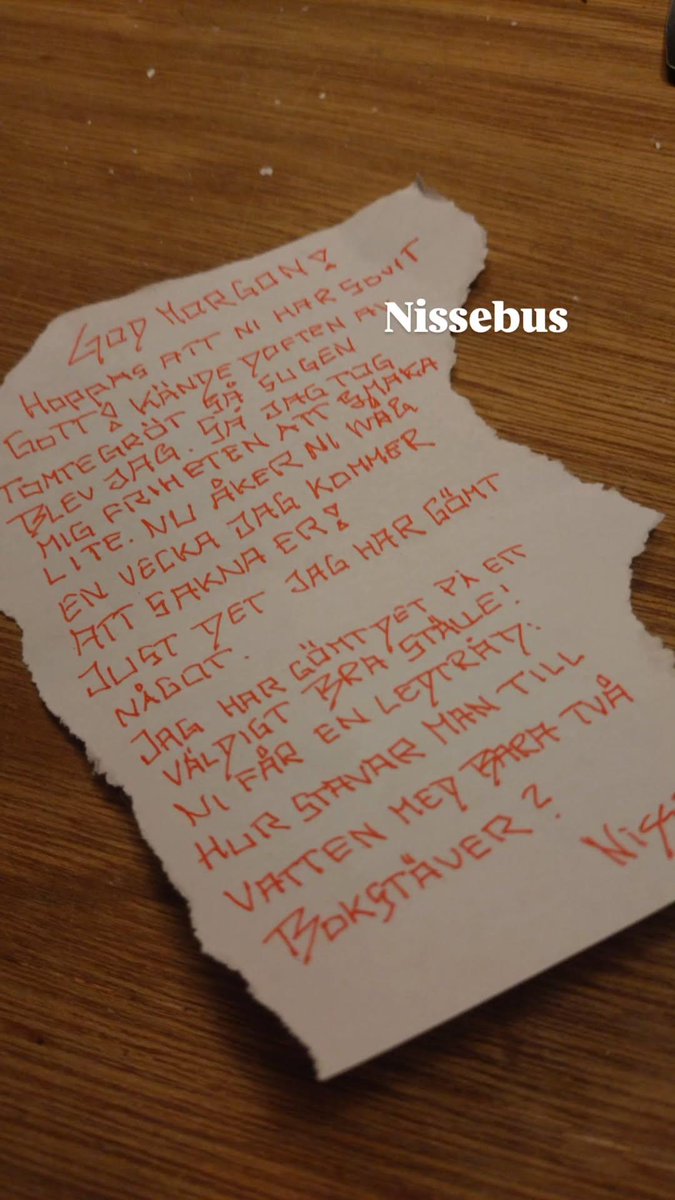 GOD MORGON!
HOPPAS ATT NI HAR SOVIT
Nissebus
GOTT! KÄNDE DOFTEN AV
TOMTEGRÖT SÅ SUGEN
BLEV JAG. SÅ JAG TOG
MIG FRIHETEN ATT SMAKA
LITE. NU ÅKER NI IVÄG
EN VECKA JAG KOMMER
ATT SAKNA ER!
JUST DET JAG HAR GÖMT
NÅGOT.
JAG HAR GÖMT DET PÅ ETT
VÄLDIGT BRA STÄLLE!
NI FÅR EN LEDTRÅD:
HUR STAVAR MAN TILL
VATTEN MED BARA TVÅ
BOKSTÄVER?